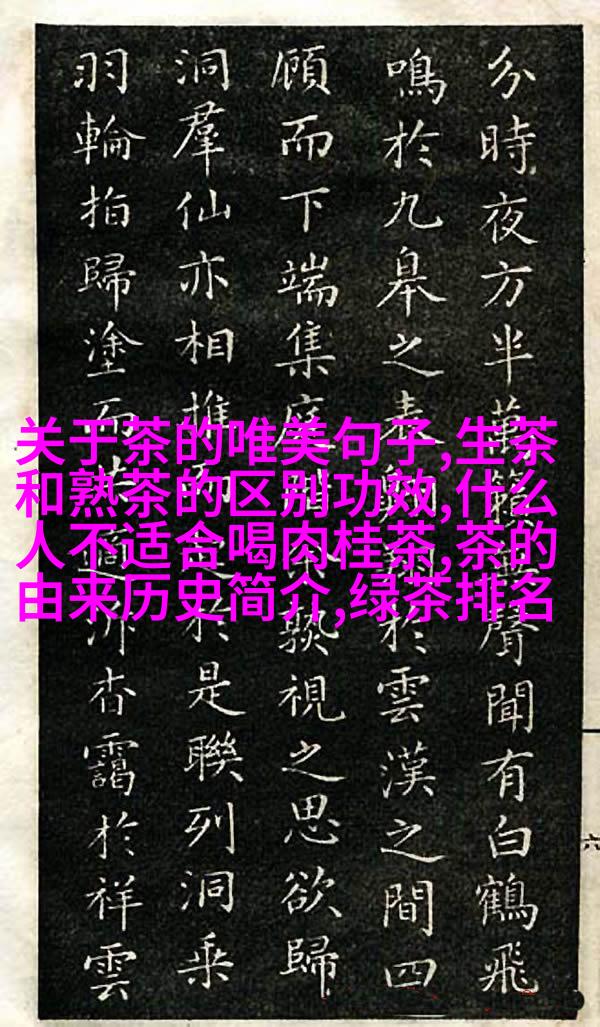 分時夜方半萬籟無聲聞有白鶴飛
鳴於九皋之表翱於雲漢之間四
顧而下端集庭孰視之思欲歸
洞羣仙亦相推於是聯列洞乘
羽輪拍歸塗而杳靄於祥雲
关于茶的唯美句子,生茶
和熟茶的区别功效,什么
人不适合喝肉桂茶,茶的
由来历史简介,绿茶排名
六